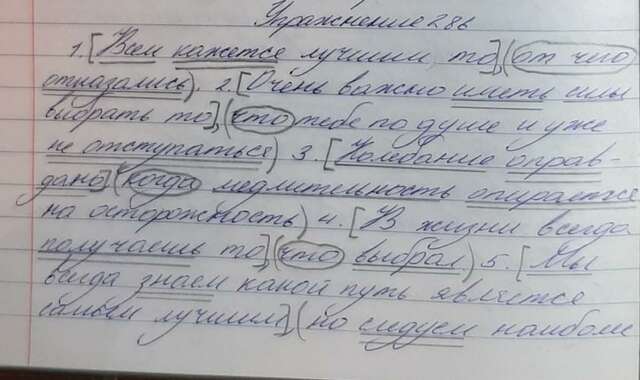 Упражнение 286
1. [Всем кажется лучшим, то], (от чего
отказались). 2. [Очень важно иметь силы
выбрать то], (что тебе по душе и уже
не отступаться) 3. [Колебание оправ-
дано], (когда медлительность опирается
на осторожность) 4. [В жизни всегда
получаешь то], (что выбрал) 5. [Мы
всегда знаем какой путь является
самым лучшим], (но следуем наиболе